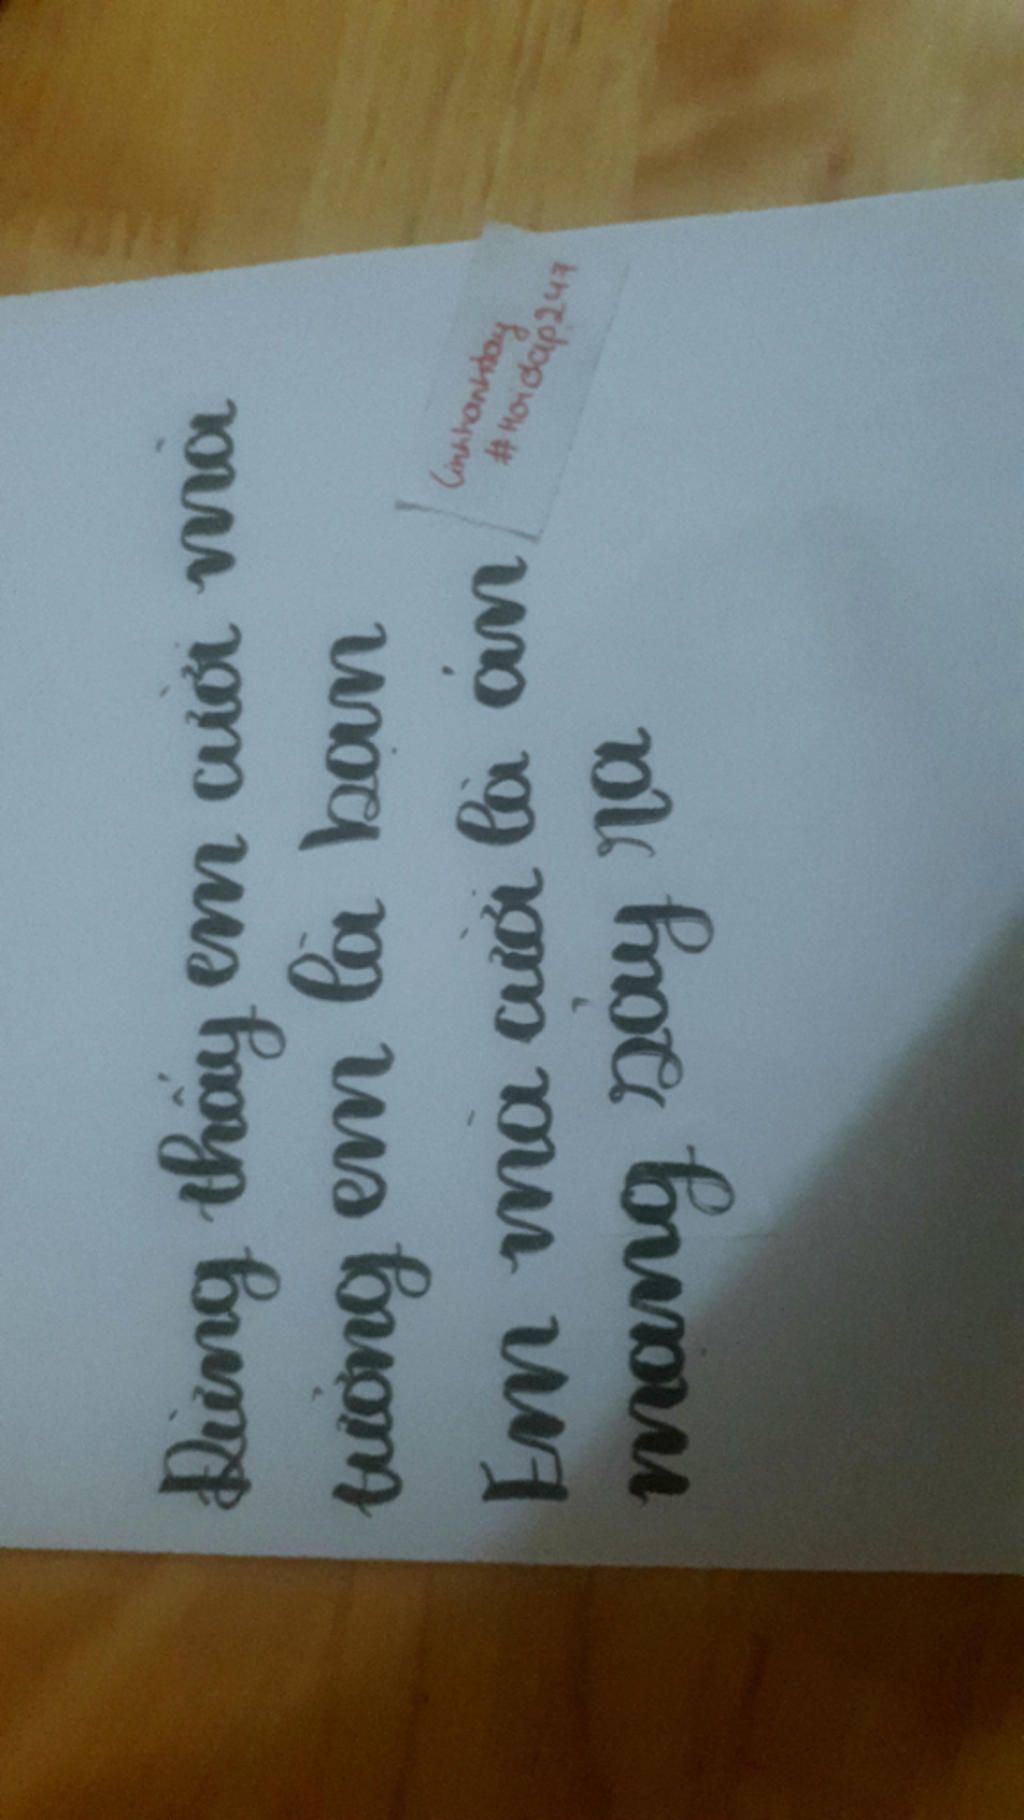 Đừng thấy em cười mà
tưởng em là bạn
Em mà cười là án
mạng xảy ra
linhhanhday
#Hoidap247